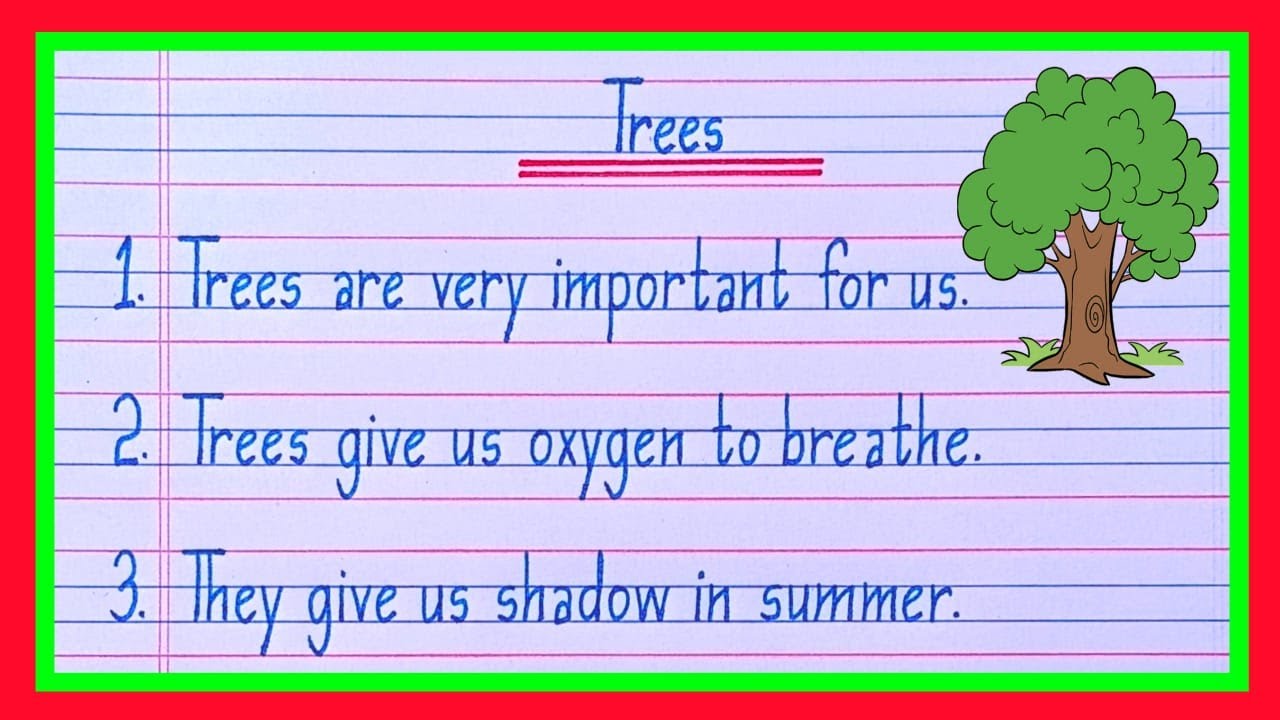 Trees
1. Trees are very important for us.
2. Trees give us oxygen to breathe.
3. They give us shadow in summer.